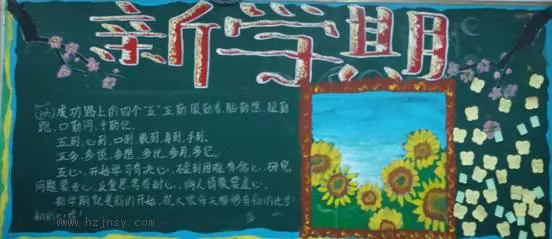 新学期
成功路上的四个"五"五勤:眼勤看,脑勤想,腿勤
跑,口勤问,手勤记。
五到:心到,口到,眼到,身到,手到。
五多:多读,多想,多记,多用,多見。
五心:开始学习有决心,碰到困难有信心,研究
问题要专心,反复思考有耐心,向人请教要虚心。
新学期就是新的开始,祝大家每天都够有新的进步!
新的心情!
www.hzjnsy.com